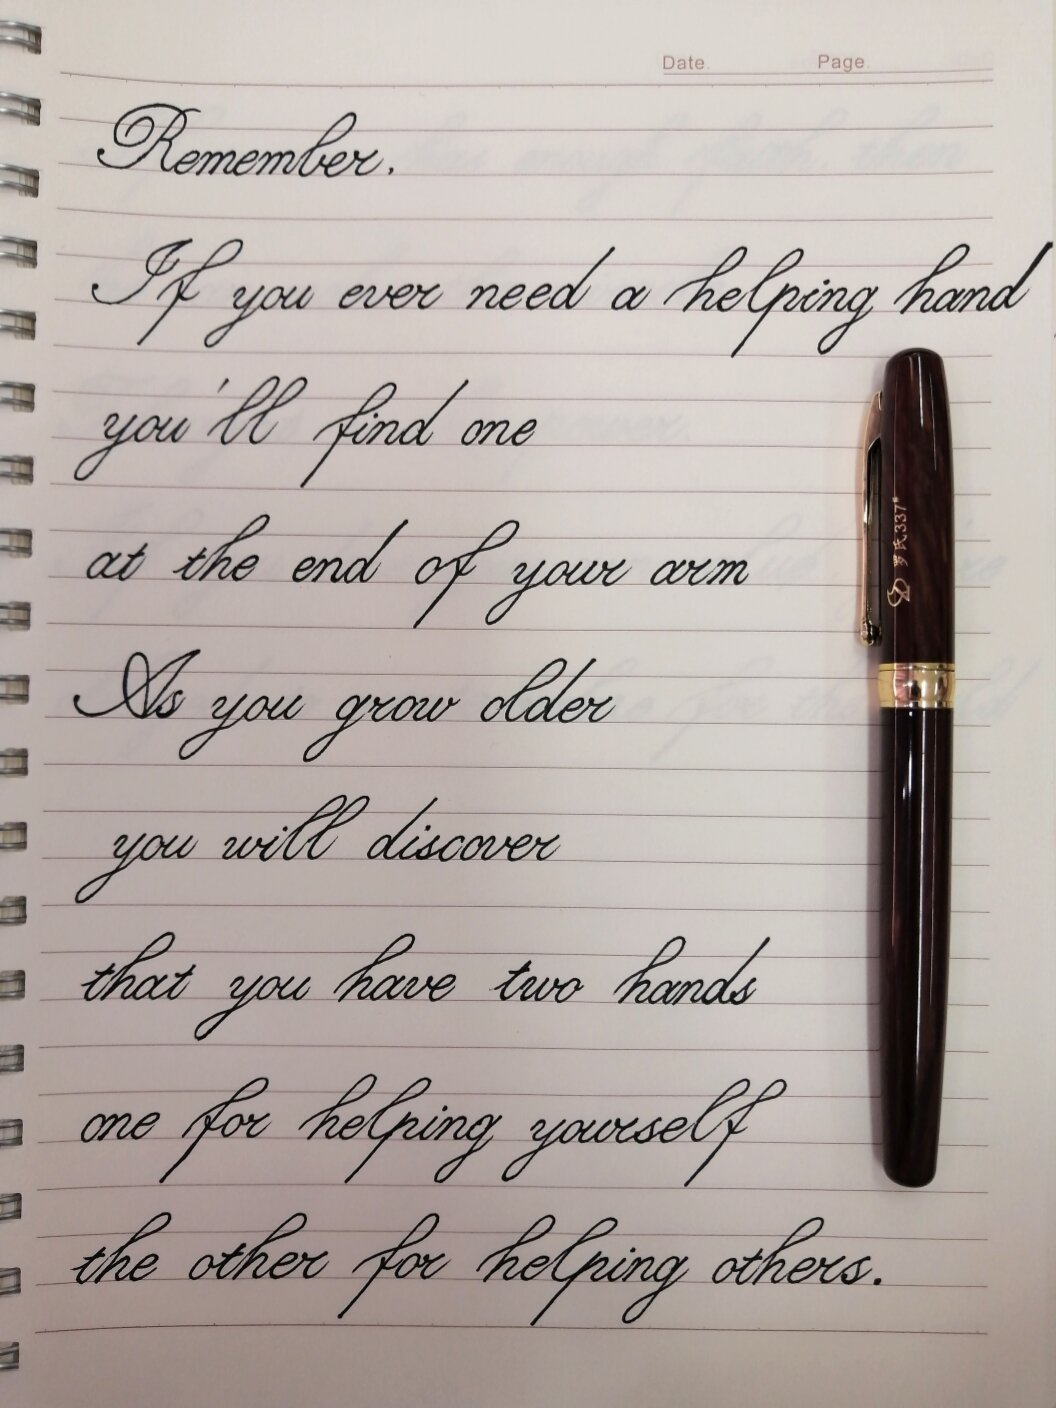 Date. Page.
Remember.
If you ever need a helping hand
you'll find one
at the end of your arm
As you grow older
you will discover
that you have two hands
one for helping yourself
the other for helping others.
罗氏337®